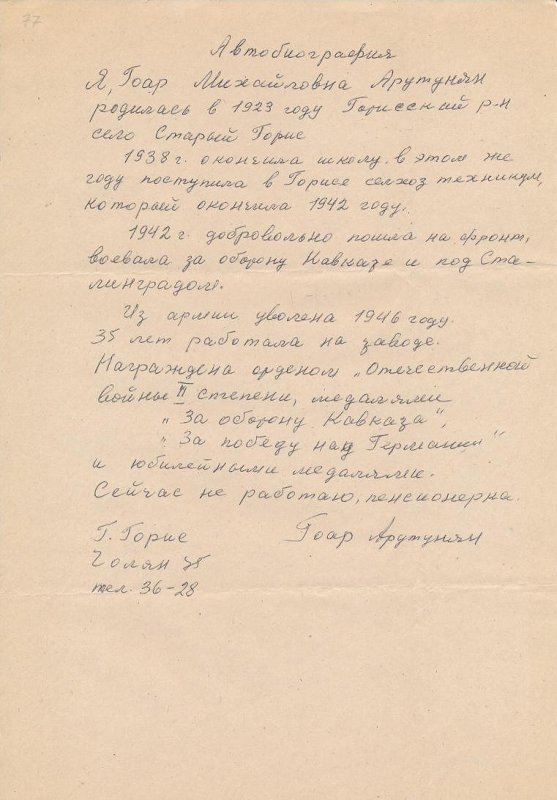 77
Автобиография
Я, Гоар Михайловна Арутунян
родилась в 1923 году Горисский р-н
село Старый Горис
1938 г. окончила школу. в этом же
году поступила в Горисе селхоз техникум,
который окончила 1942 году.
1942 г. добровольно пошла на фронт,
воевала за оборону Кавказе и под Ста-
линградом.
Из армии уволена 1946 году.
35 лет работала на заводе.
Награждена орденом „Отечественной
войны II степени, медалями
„За оборону Кавказа",
„За победу над Германии"
и юбилейными медалями.
Сейчас не работаю, пенсионерка.
Г. Горис Гоар Арутунян
Чолян
тел. 36-28